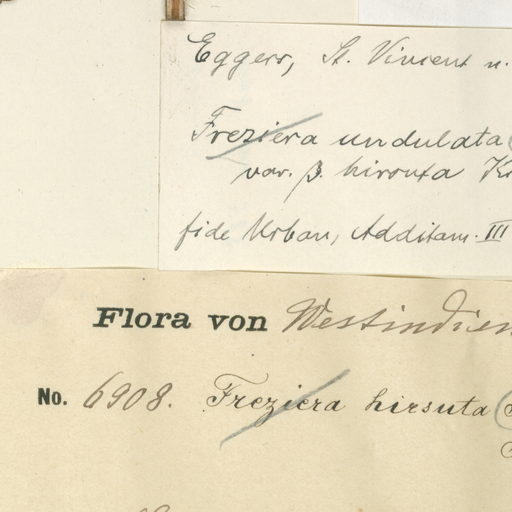 Eggers, St. Vincent n.
Freziera undulata
var. β. hirsuta Kr
fide Urban, Additam. III
Flora von Westindien
No. 6908. Freziera hirsuta